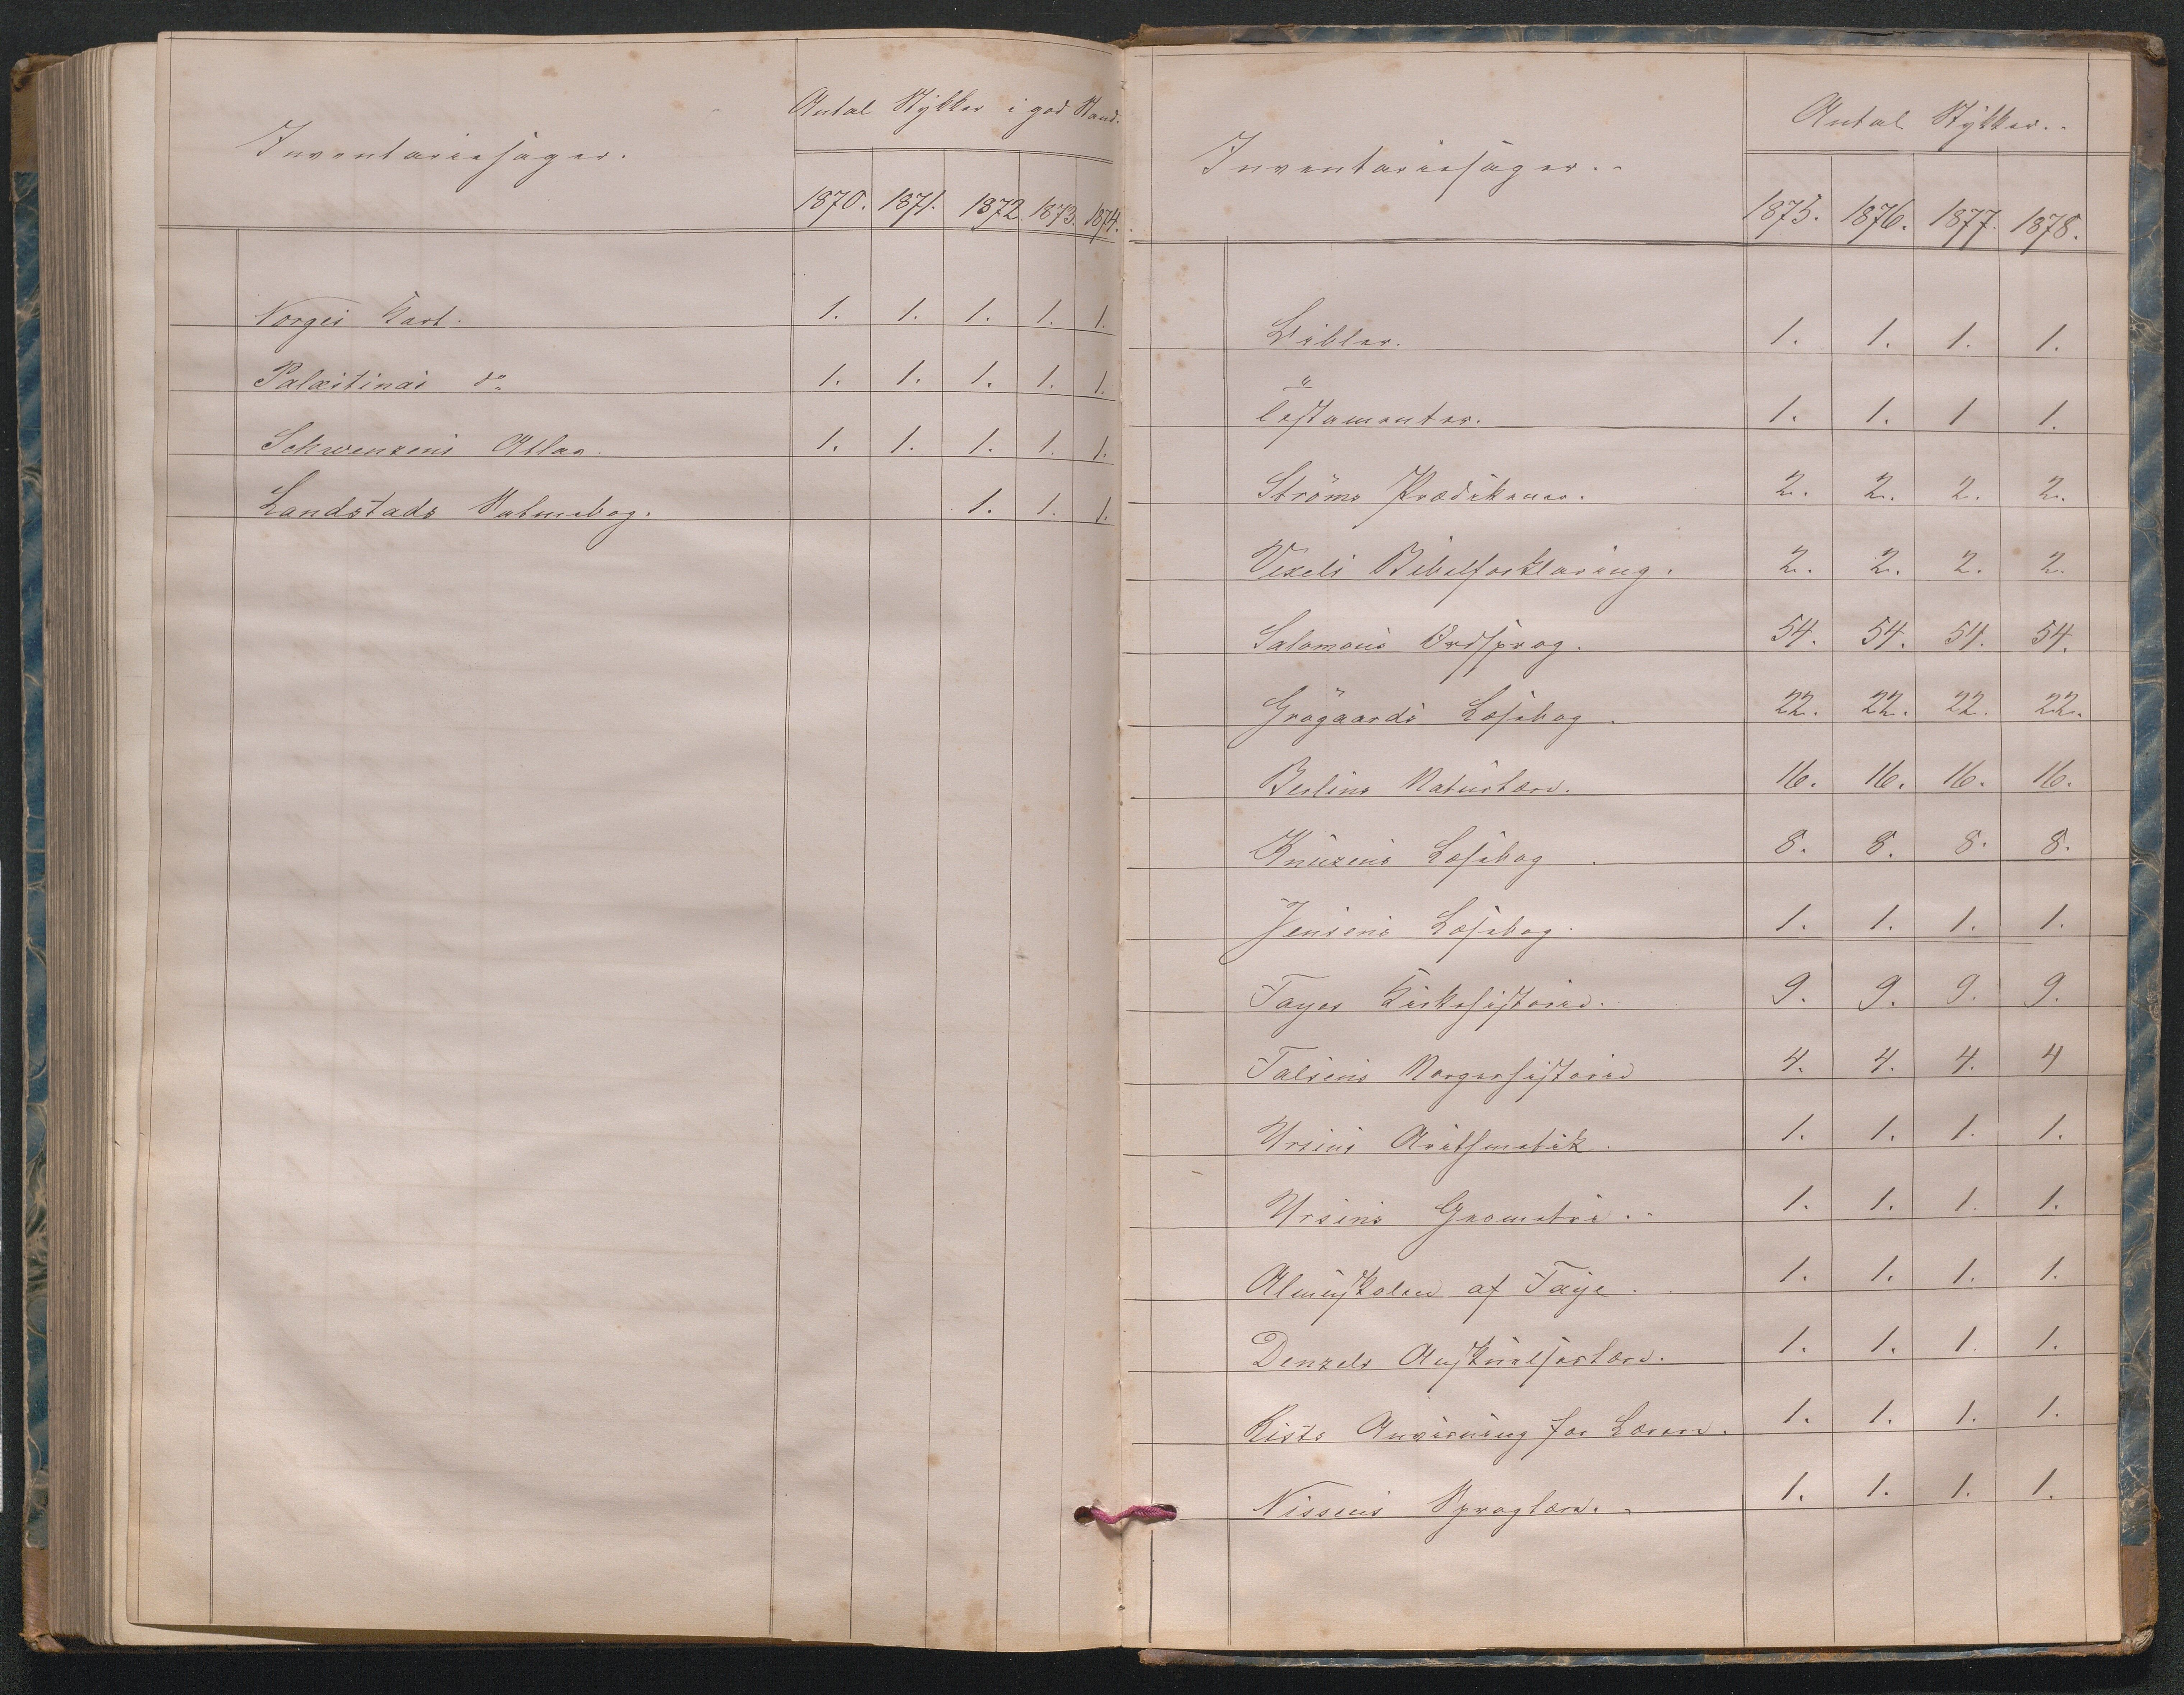 Inventariesager.
Antal Stykker i god Stand.
1870. 1871. 1872. 1873. 1874.
Norges Kart. 1. 1. 1. 1. 1.
Palæstinas do 1. 1. 1. 1. 1.
Schwenzens Atlas. 1. 1. 1. 1. 1.
Landstads Salmebog. 1. 1. 1.
Inventariesager.
Antal Stykker.
1875. 1876. 1877. 1878.
Bibler. 1. 1. 1. 1.
Testamenter. 1. 1. 1 1.
Ströms Prædikener. 2. 2. 2. 2.
Vexels Bibelforklaring. 2. 2. 2. 2.
Salomons Ordsprog. 54. 54. 54. 54.
Grögaards Læsebog. 22. 22. 22. 22.
Berlins Naturlære. 16. 16. 16. 16.
Knuzens Læsebog. 8. 8. 8. 8.
Jensens Læsebog. 1. 1. 1. 1.
Fayes Kirkehistorie. 9. 9. 9. 9.
Falsens Norgeshistorie 4. 4. 4. 4
Ursins Arithmetik. 1. 1. 1. 1.
Ursins Geometri. 1. 1. 1. 1.
Almuskolen af Faye. 1. 1. 1. 1.
Denzels Anskuelseslære. 1. 1. 1. 1.
Kists Anvisning for Lærere. 1. 1. 1. 1.
Nissens Sproglære. 1. 1. 1. 1.